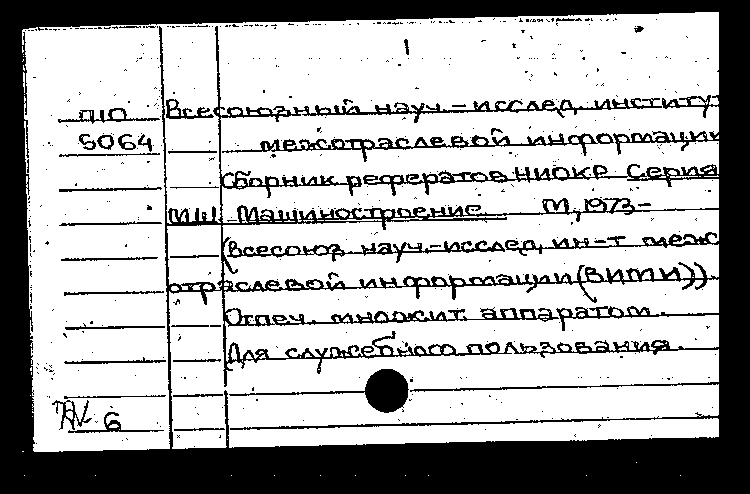 1
П10 Всесоюзный науч.-исслед. институт
5064 межотраслевой информации
Сборник рефератов НИОКР Серия
МШ Машиностроение М., 1973-
(Всесоюз. науч.-исслед. ин-т меж
отраслевой информации (ВИМИ)).
Отпеч. множит. аппаратом.
Для служебного пользования.
6